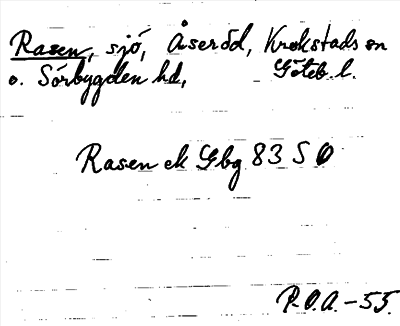 Rasen, sjö, Åseröd, Krokstads sn
o. Sörbygden hd, Göteb. l.
Rasen ek Gbg 83 S O
P.O.A. -55.